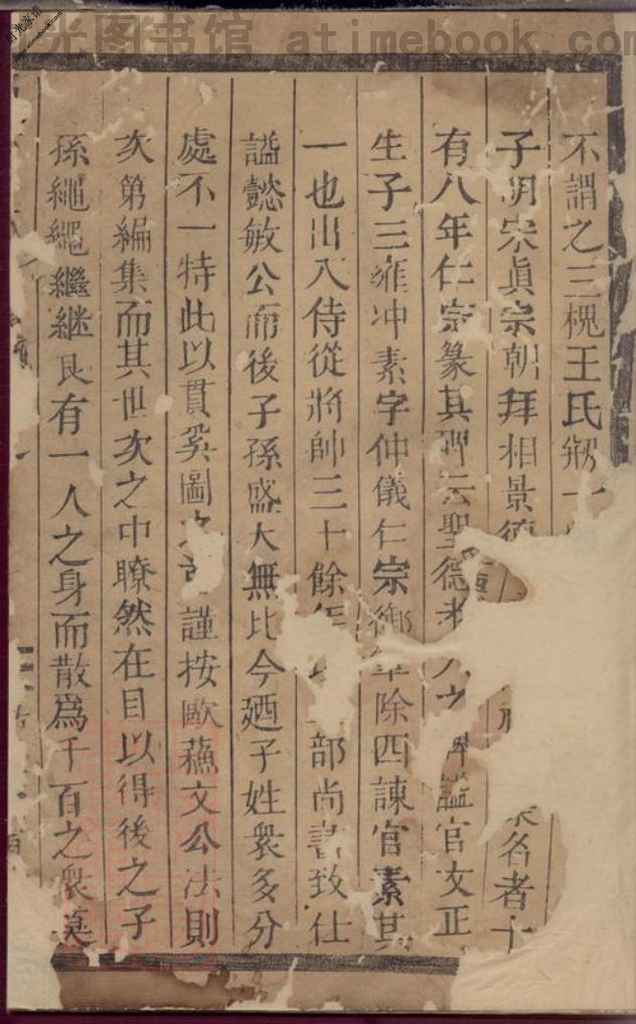 光图书馆 atimebook.com
不謂之三槐王氏
子明宗眞宗朝拜相景德名者十
有八年仁宗篆其碑云聖德謚官文正
生子三雍冲素字仲儀仁宗除四諫官素其
一也出入侍從將帥三十餘年部尚書致仕
謚懿敏公而後子孫盛大無比今廼子姓衆多分
處不一特此以貫奚圖謹按歐蘓文公法則
次第編集而其世次之中瞭然在目以得後之子
孫繩繩繼継良有一人之身而散爲千百之衆莫